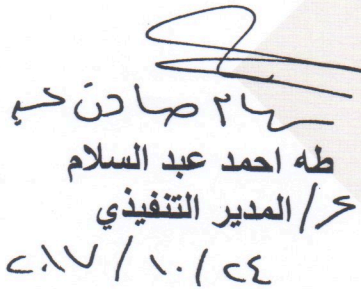 سهام صادق
طه احمد عبد السلام
ع/ المدير التنفيذي
٢٠١٧/١٠/٢٤